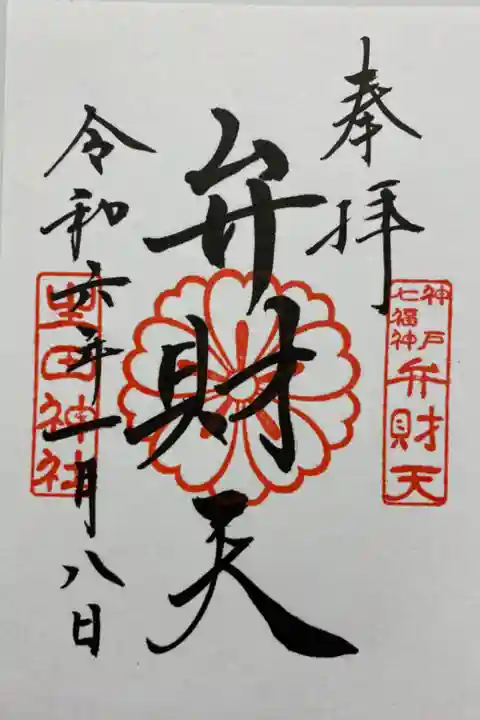 奉拝
神戸
七福神
弁財天
弁財天
令和六年一月八日
生田神社